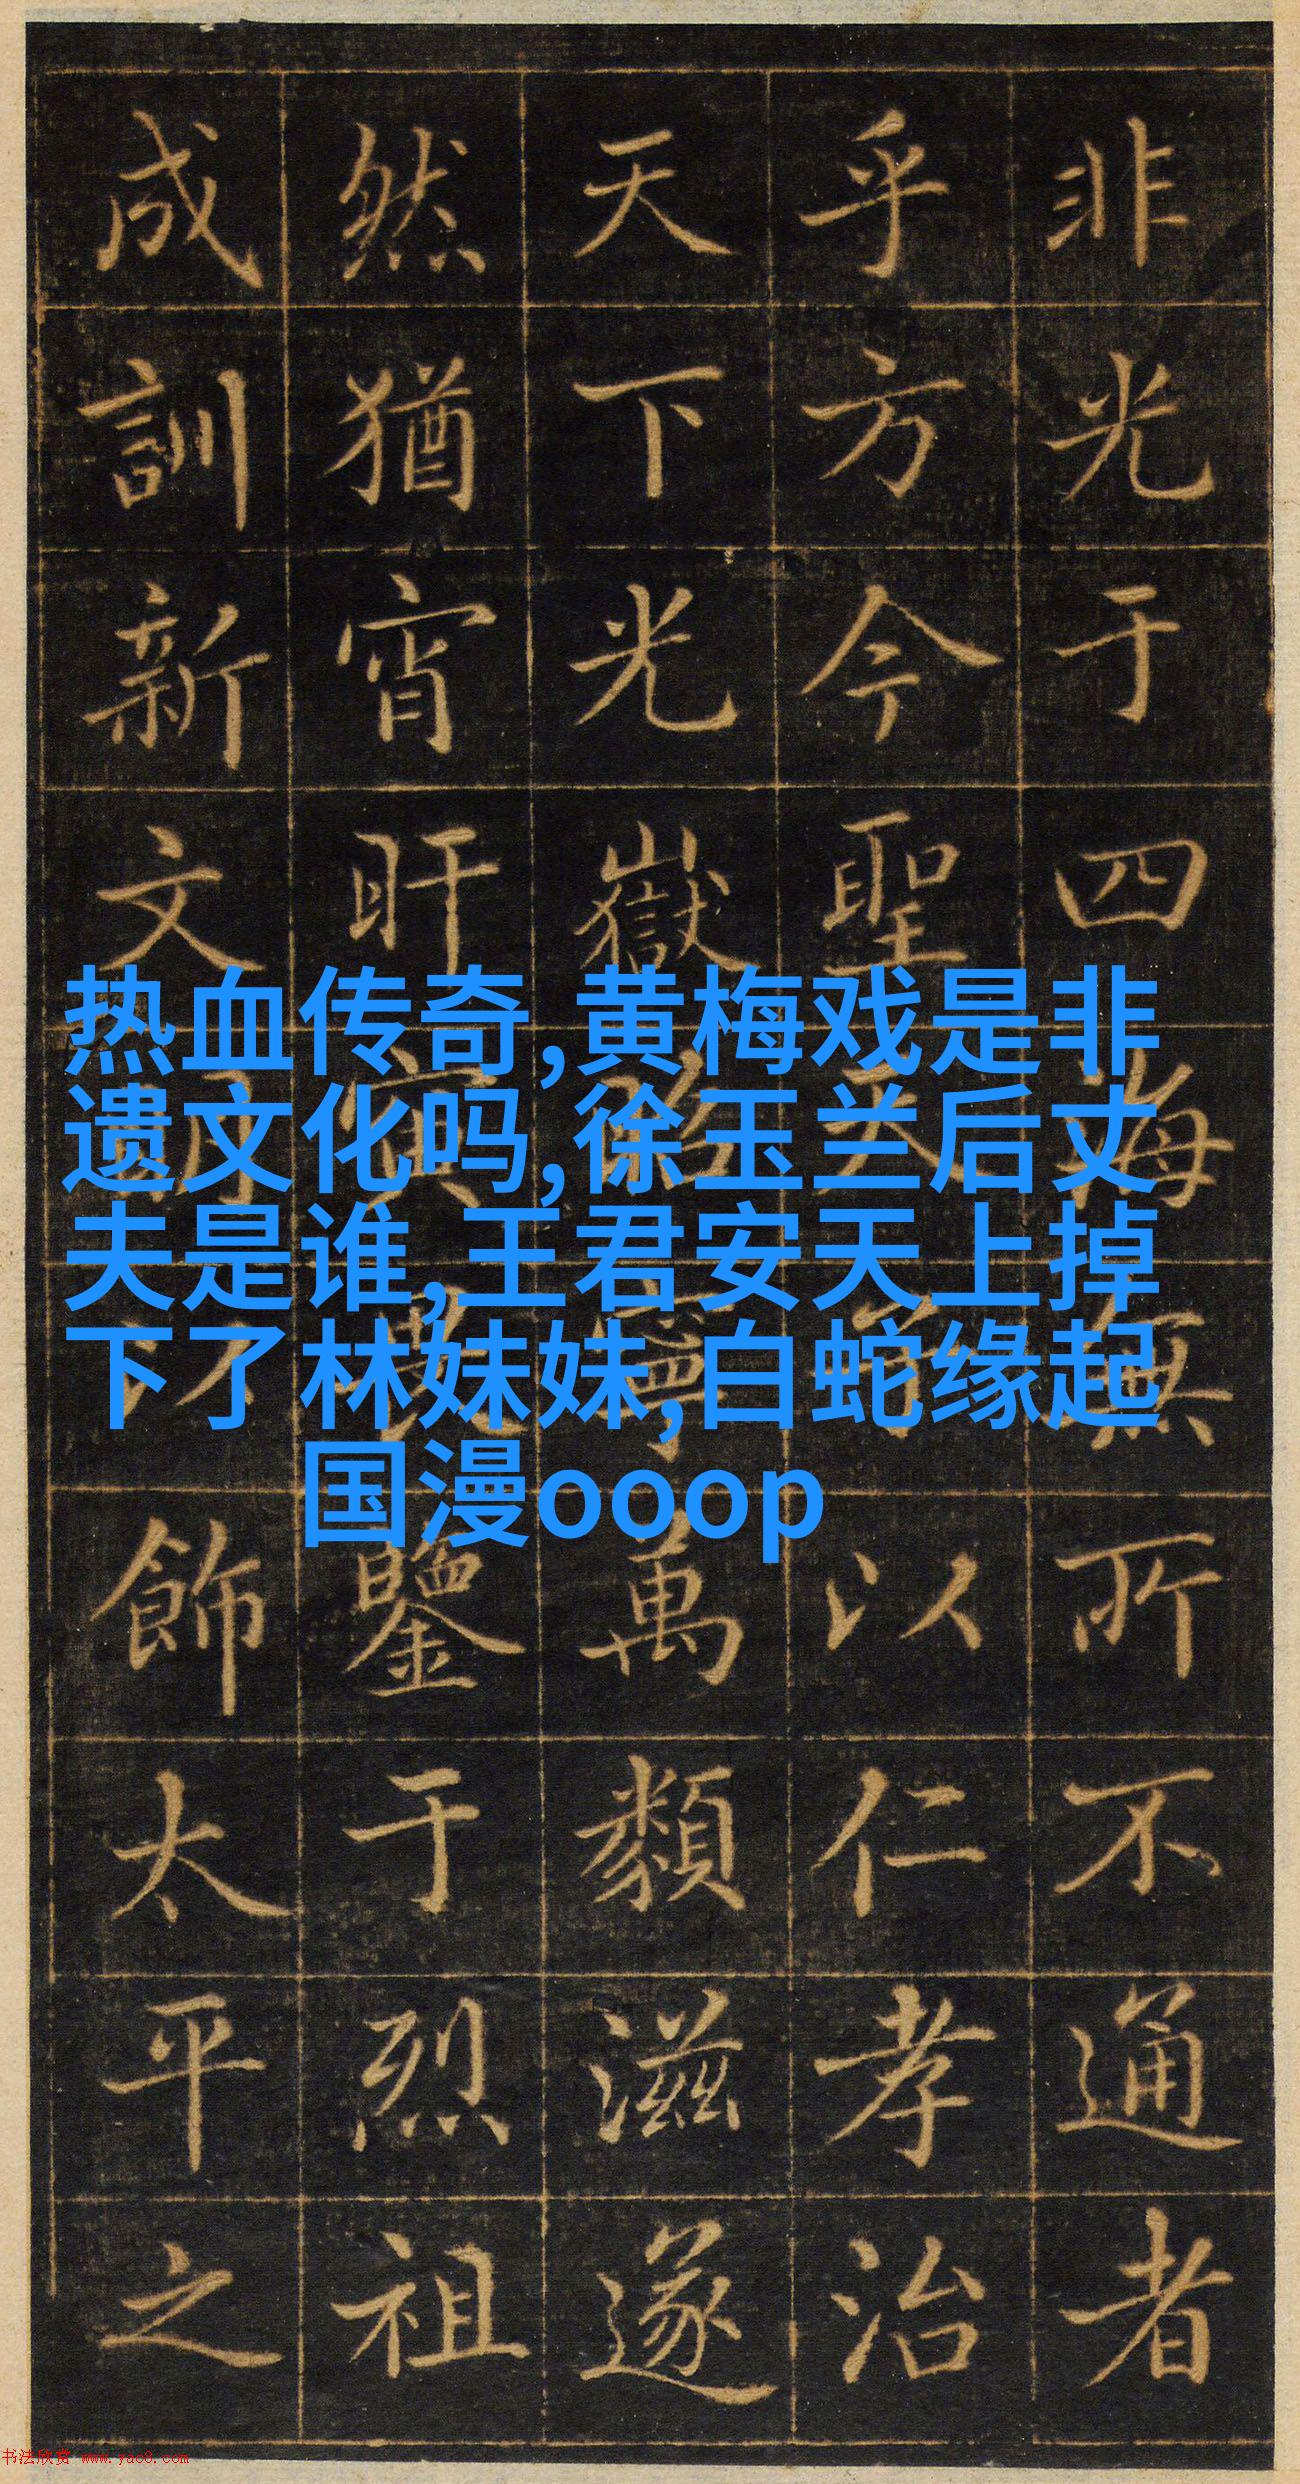 非光于四海無所不通者
乎方今聖天子以仁孝治
天下光嶽寧萬類滋遂
然猶宵旰寅畏鑒于烈祖
成訓新文明以飾太平之
热血传奇,黄梅戏是非
遗文化吗,徐玉兰后丈
夫是谁,王君安天上掉
下了林妹妹,白蛇缘起
国漫ooop
书法欣赏 www.yac8.com